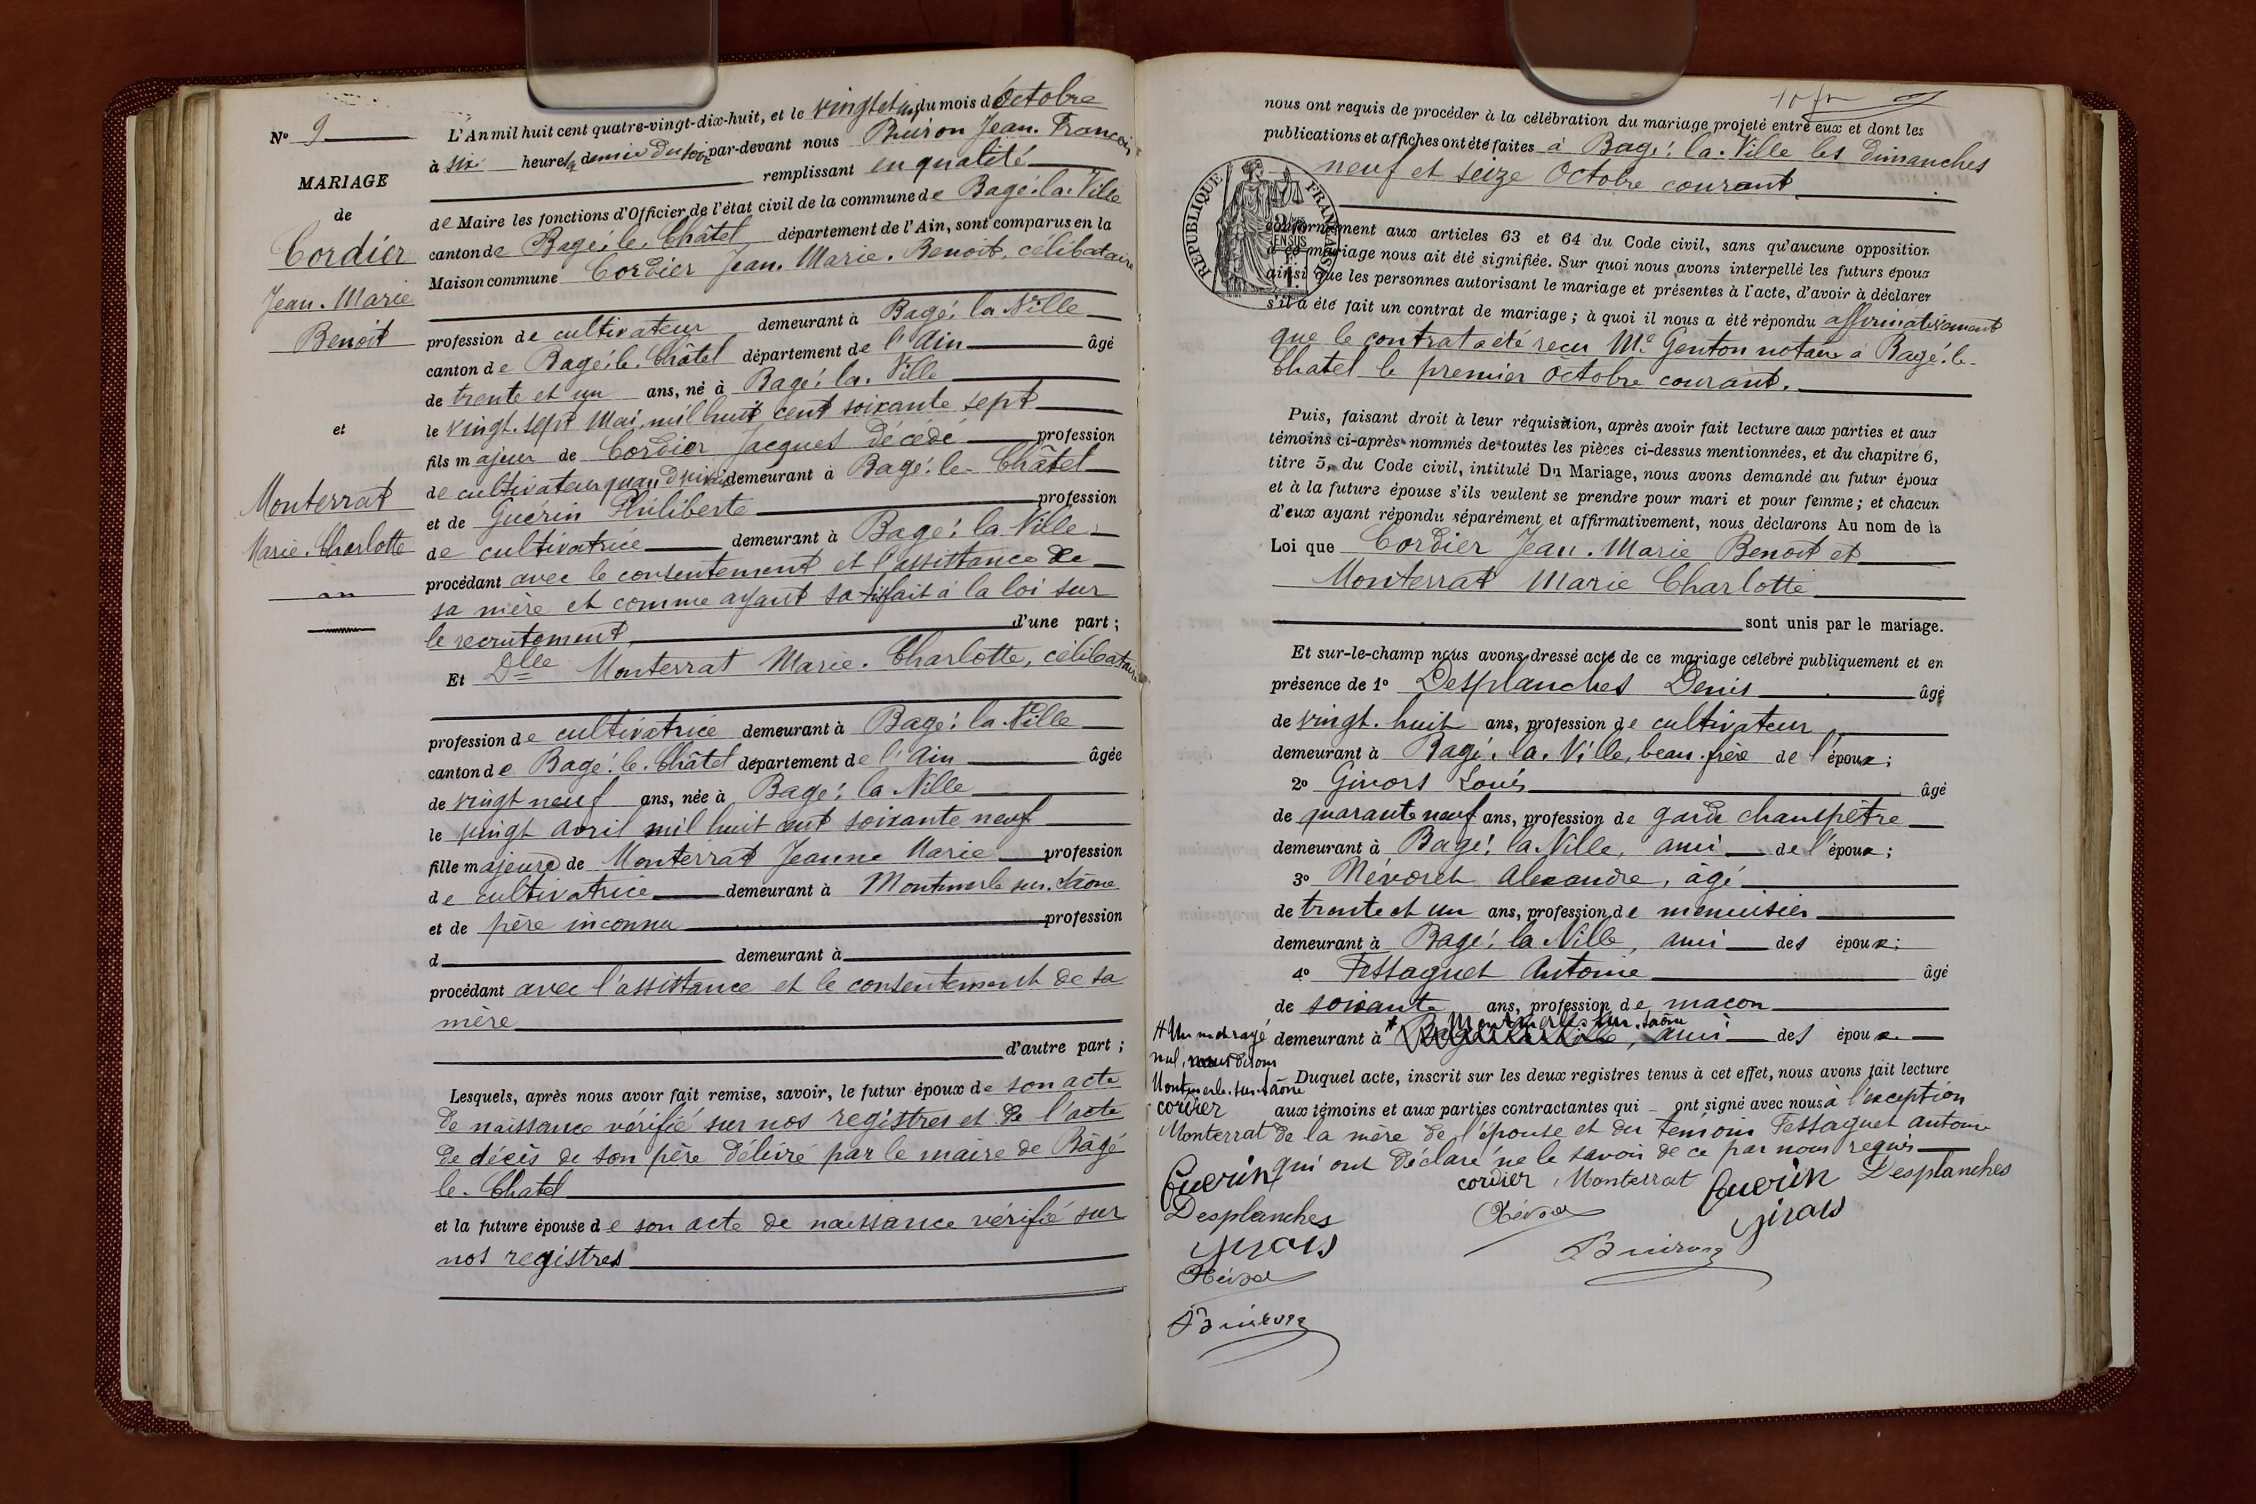 N° 9
MARIAGE
de
Cordier
Jean. Marie
Benoit
et
Monterrat
Marie. Charlotte
L'An mil huit cent quatre-vingt-dix-huit, et le du mois d'Octobre
à six heures & demie du soir par-devant nous Buiron Jean. François
remplissant en qualité
de Maire les fonctions d'Officier de l'état civil de la commune de Bagé. la. Ville
canton de Bagé. le. Châtel département de l'Ain, sont comparus en la
Maison commune Cordier Jean. Marie. Benoit, célibataire
profession de cultivateur demeurant à Bagé. la Ville
canton de Bagé. le. Châtel département de l'Ain âgé
de trente et un ans, né à Bagé. la. Ville
le vingt. sept Mai, mil huit cent soixante sept
fils majeur de Cordier Jacques décédé profession
de cultivateur quand vivait demeurant à Bagé. le. Châtel
et de Guérin Philiberte profession
de cultivatrice demeurant à Bagé. la Ville
procédant avec le consentement et l'assistance de
sa mère et comme ayant satisfait à la loi sur
le recrutement d'une part ;
Et Dlle Monterrat Marie. Charlotte, célibataire
profession de cultivatrice demeurant à Bagé. la Ville
canton de Bagé. le. Châtel département de l'Ain âgée
de vingt neuf ans, née à Bagé. la Ville
le vingt avril mil huit cent soixante neuf
fille majeure de Monterrat Jeanne Marie profession
de cultivatrice demeurant à Montmerle sur. Saône
et de père inconnu profession
d demeurant à
procédant avec l'assistance et le consentement de sa
mère
d'autre part ;
Lesquels, après nous avoir fait remise, savoir, le futur époux de son acte
de naissance vérifié sur nos registres et de l'acte
de décès de son père délivré par le maire de Bâgé
le. Chatel
et la future épouse de son acte de naissance vérifié sur
nos registres
nous ont requis de procéder à la célébration du mariage projeté entre eux et dont les
publications et affiches ont été faites à Bagé. la. Ville les dimanches
neuf et seize Octobre courant
RÉPUBLIQUE FRANÇAISE
conformément aux articles 63 et 64 du Code civil, sans qu'aucune opposition
à ce mariage nous ait été signifiée. Sur quoi nous avons interpellé les futurs époux
ainsi que les personnes autorisant le mariage et présentes à l'acte, d'avoir à déclarer
s'il a été fait un contrat de mariage ; à quoi il nous a été répondu affirmativement
que le contrat a été reçu Me Genton notaire à Bagé. le.
Chatel le premier Octobre courant.
Puis, faisant droit à leur réquisition, après avoir fait lecture aux parties et aux
témoins ci-après nommés de toutes les pièces ci-dessus mentionnées, et du chapitre 6,
titre 5, du Code civil, intitulé Du Mariage, nous avons demandé au futur époux
et à la future épouse s'ils veulent se prendre pour mari et pour femme ; et chacun
d'eux ayant répondu séparément et affirmativement, nous déclarons Au nom de la
Loi que Cordier Jean. Marie Benoit et
Monterrat Marie Charlotte
sont unis par le mariage.
Et sur-le-champ nous avons dressé acte de ce mariage célébré publiquement et en
présence de 1° Desplanches Denis âgé
de vingt. huit ans, profession de cultivateur
demeurant à Bagé. la. Ville, beau. frère de l'époux ;
2° Givors Louis âgé
de quarante neuf ans, profession de garde champêtre
demeurant à Bagé. la Ville, ami de l'époux ;
3° Mévoret Alexandre, âgé
de trente et un ans, profession de menuisier
demeurant à Bagé. la Ville, ami des époux ;
4° Fessaguet Antoine âgé
de soixante ans, profession de maçon
demeurant à Montmerle. sur. Saône, ami des époux
Un mot rayé
nul, nous disons
Montmerle. sur. Saône
Duquel acte, inscrit sur les deux registres tenus à cet effet, nous avons fait lecture
aux témoins et aux parties contractantes qui ont signé avec nous à l'exception
de la mère de l'épouse et du témoin Fessaguet antoine
qui ont déclaré ne le savoir de ce par nous requis
cordier Monterrat Guerin Desplanches
givors
Buiron
cordier
Monterrat
Guerin
Desplanches
givors
Buiron